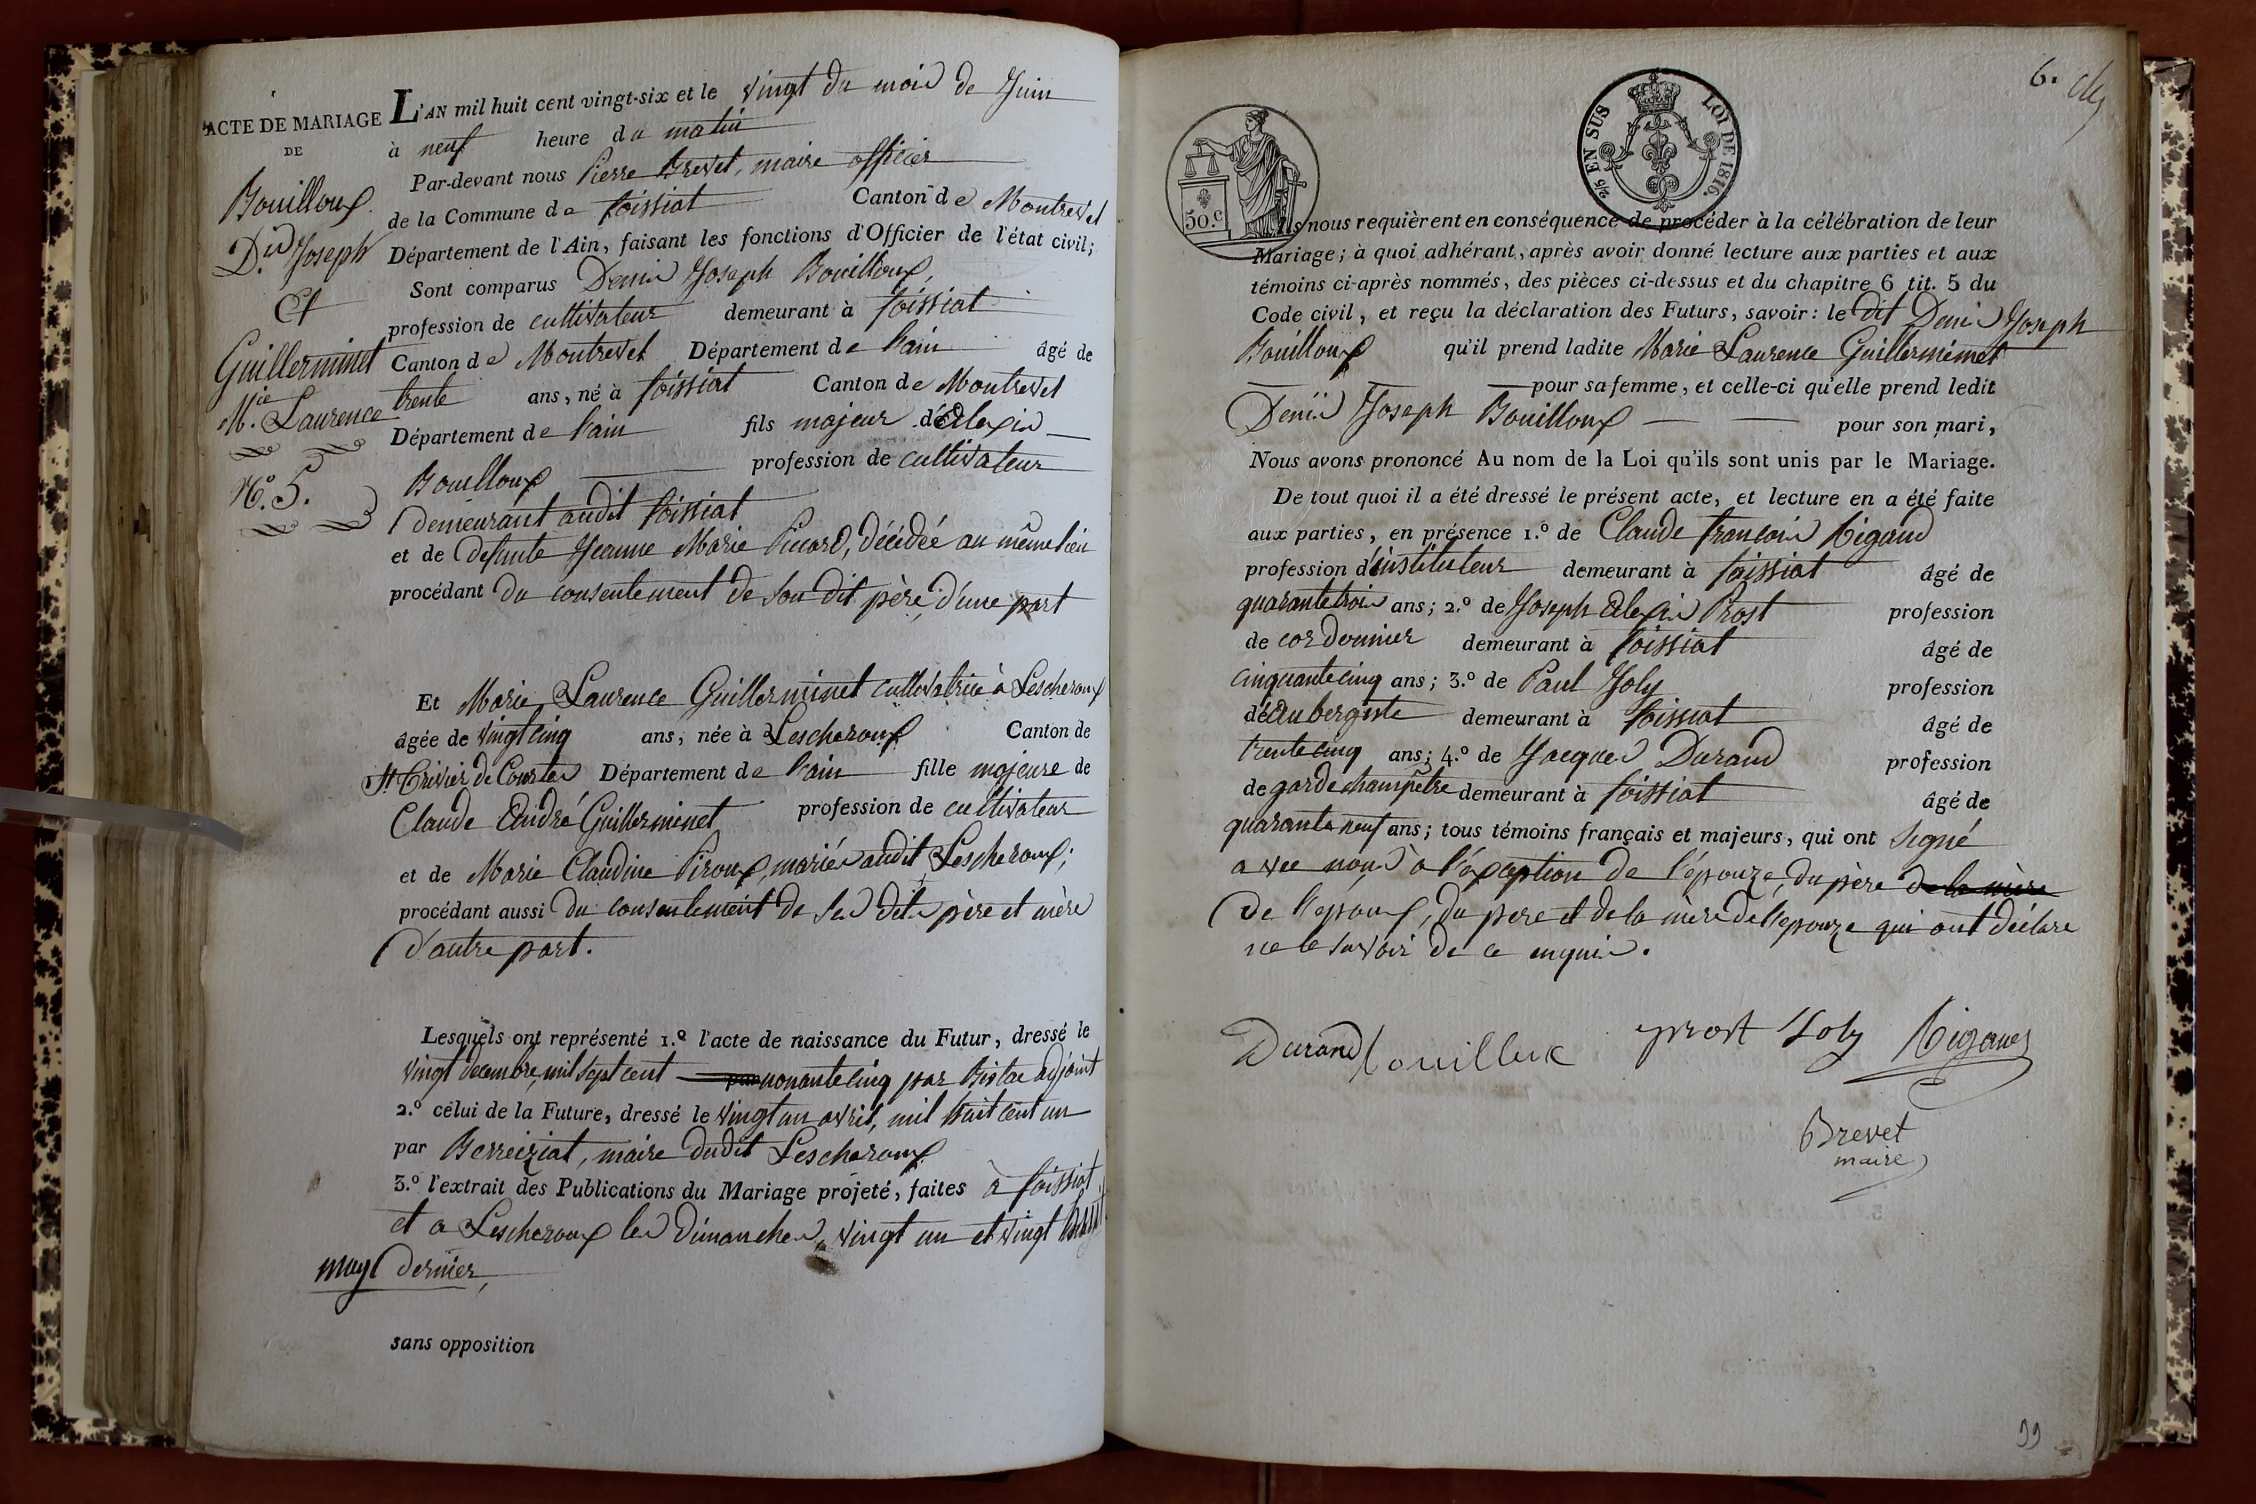 ACTE DE MARIAGE
DE
Bouilloux
D.is Joseph
Et
Guillerminet
M.ie Laurence
N.o 5.
L'AN mil huit cent vingt-six et le vingt du mois de Juin
à neuf heure du matin
Par-devant nous Pierre Brevet, maire officier
de la Commune de foissiat Canton de Montrevel
Département de l'Ain, faisant les fonctions d'Officier de l'état civil;
Sont comparus Denis Joseph Bouilloux,
profession de cultivateur demeurant à foissiat
Canton de Montrevel Département de l'ain âgé de
trente ans, né à foissiat Canton de Montrevel
Département de l'ain fils majeur d'Alexis
Bouilloux profession de cultivateur
demeurant audit foissiat
et de defunte Jeanne Marie Picard, décédée au même lieu
procédant du consentement de son dit père, d'une part
Et Marie Laurence Guillerminet cultivatrice à Lescheroux
âgée de vingt cinq ans, née à Lescheroux Canton de
St Trivier de Courtes Département de l'ain fille majeure de
Claude André Guillerminet profession de cultivateur
et de Marie Claudine Piroux, mariés audit Lescheroux;
procédant aussi du consentement de ses dits père et mère
d'autre part.
Lesquels ont représenté 1.o l'acte de naissance du Futur, dressé le
vingt decembre, mil sept cent nonante cinq par adjoint
2.o celui de la Future, dressé le vingt un avril, mil huit cent un
par Berreiziat, maire dudit Lescheroux
3.o l'extrait des Publications du Mariage projeté, faites à foissiat
et a Lescheroux les dimanches, vingt un et vingt huit
may dernier,
sans opposition
6.
50.c
2/5 EN SUS LOI DE 1816.
Ils nous requièrent en conséquence de procéder à la célébration de leur
Mariage; à quoi adhérant, après avoir donné lecture aux parties et aux
témoins ci-après nommés, des pièces ci-dessus et du chapitre 6 tit. 5 du
Code civil, et reçu la déclaration des Futurs, savoir: le dit Denis Joseph
Bouilloux qu'il prend ladite Marie Laurence Guillerminet
pour sa femme, et celle-ci qu'elle prend ledit
Denis Joseph Bouilloux pour son mari,
Nous avons prononcé Au nom de la Loi qu'ils sont unis par le Mariage.
De tout quoi il a été dressé le présent acte, et lecture en a été faite
aux parties, en présence 1.o de Claude françois Rigaud
profession d'instituteur demeurant à foissiat âgé de
quarante trois ans; 2.o de Joseph Alexis Prost profession
de cordonnier demeurant à foissiat âgé de
cinquante cinq ans; 3.o de Paul Joly profession
d'aubergiste demeurant à foissiat âgé de
trente cinq ans; 4.o de Jacques Durand profession
de garde champêtre demeurant à foissiat âgé de
quarante neuf ans; tous témoins français et majeurs, qui ont signé
avec nous à l'exception de l'épouze, du père de la mère
de l'epoux, du pere et de la mère de l'epouze qui ont déclaré
ne le savoir de ce enquis.
Durand Bouilloux prost Joly Rigaud
Brevet
maire
99